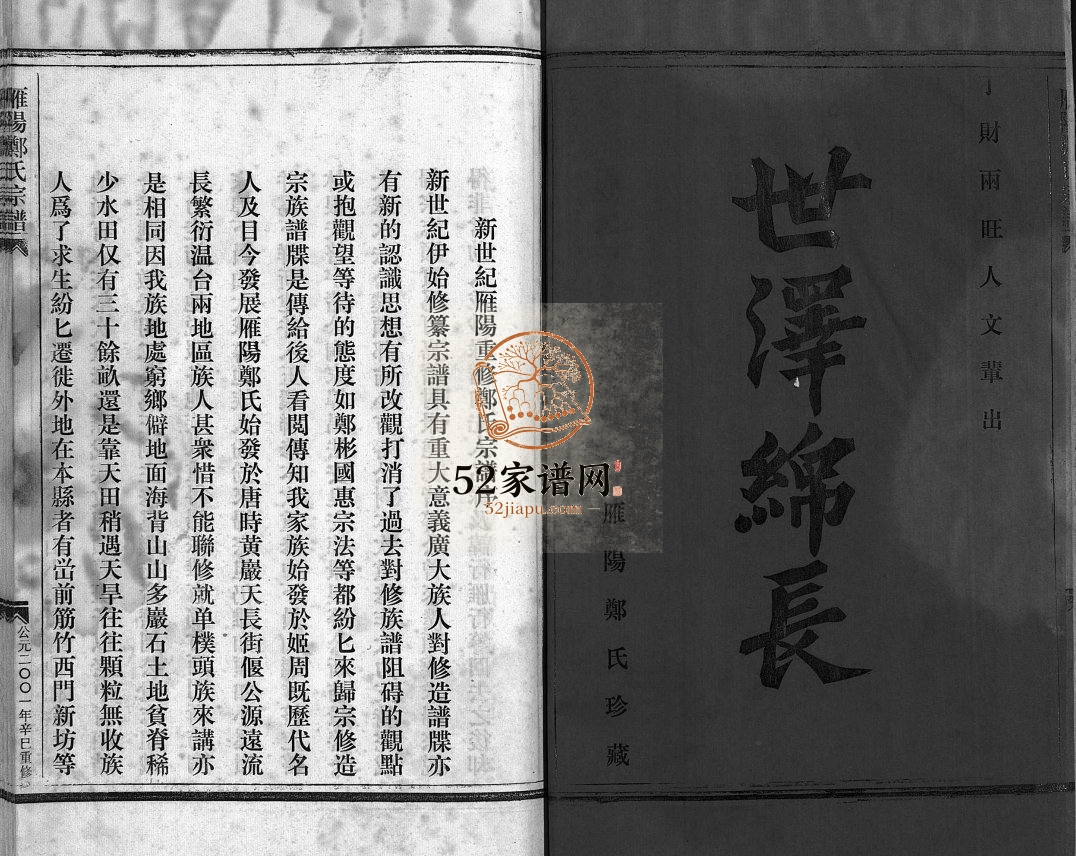 丁財兩旺人文輩出
世澤綿長
雁陽鄭氏珍藏
新世紀雁陽重修鄭氏宗譜序
新世紀伊始修纂宗譜具有重大意義廣大族人對修造譜牒亦
有新的認識思想有所改觀打消了過去對修族譜阻碍的觀點
或抱觀望等待的態度如鄭彬國惠宗法等都紛匕來歸宗修造
宗族譜牒是傳給後人看閱傳知我家族始發於姬周既歷代名
人及目今發展雁陽鄭氏始發於唐時黄巖天長街偃公源遠流
長繁衍温台兩地區族人甚衆惜不能聯修就单樸頭族來講亦
是相同因我族地處窮鄉僻地面海背山山多巖石土地貧脊稀
少水田仅有三十餘畝還是靠天田稍遇天旱往往顆粒無收族
人爲了求生紛匕遷徙外地在本縣者有岀前筋竹西門新坊等
雁陽鄭氏宗譜
公元二〇〇一年辛巳重修
52家谱网
52jiapu.com